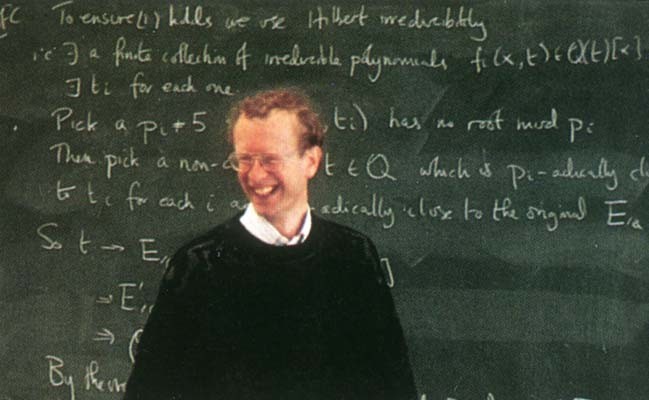 To ensure (1) holds we use Hilbert irreducibility
i.e ∃ a finite collection of irreducible polynomials fi(x,t) ∈ Q(t)[x]
∃ ti for each one.
Pick a pi ≠ 5 ti) has no root mod pi
Then pick a t ∈ Q which is pi-adically
to ti for each i close to the original E
So t → E
→ E'
→
By